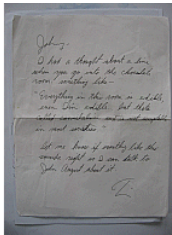 Johnny -
I had a thought about a line
when you go into the chocolate
room something like -
"Everything in this room is eatable
even I'm eatable, but that's
called cannibalism and is not
in most societies"
Let me know if something like this
sounds right so I can talk to
John August about it.